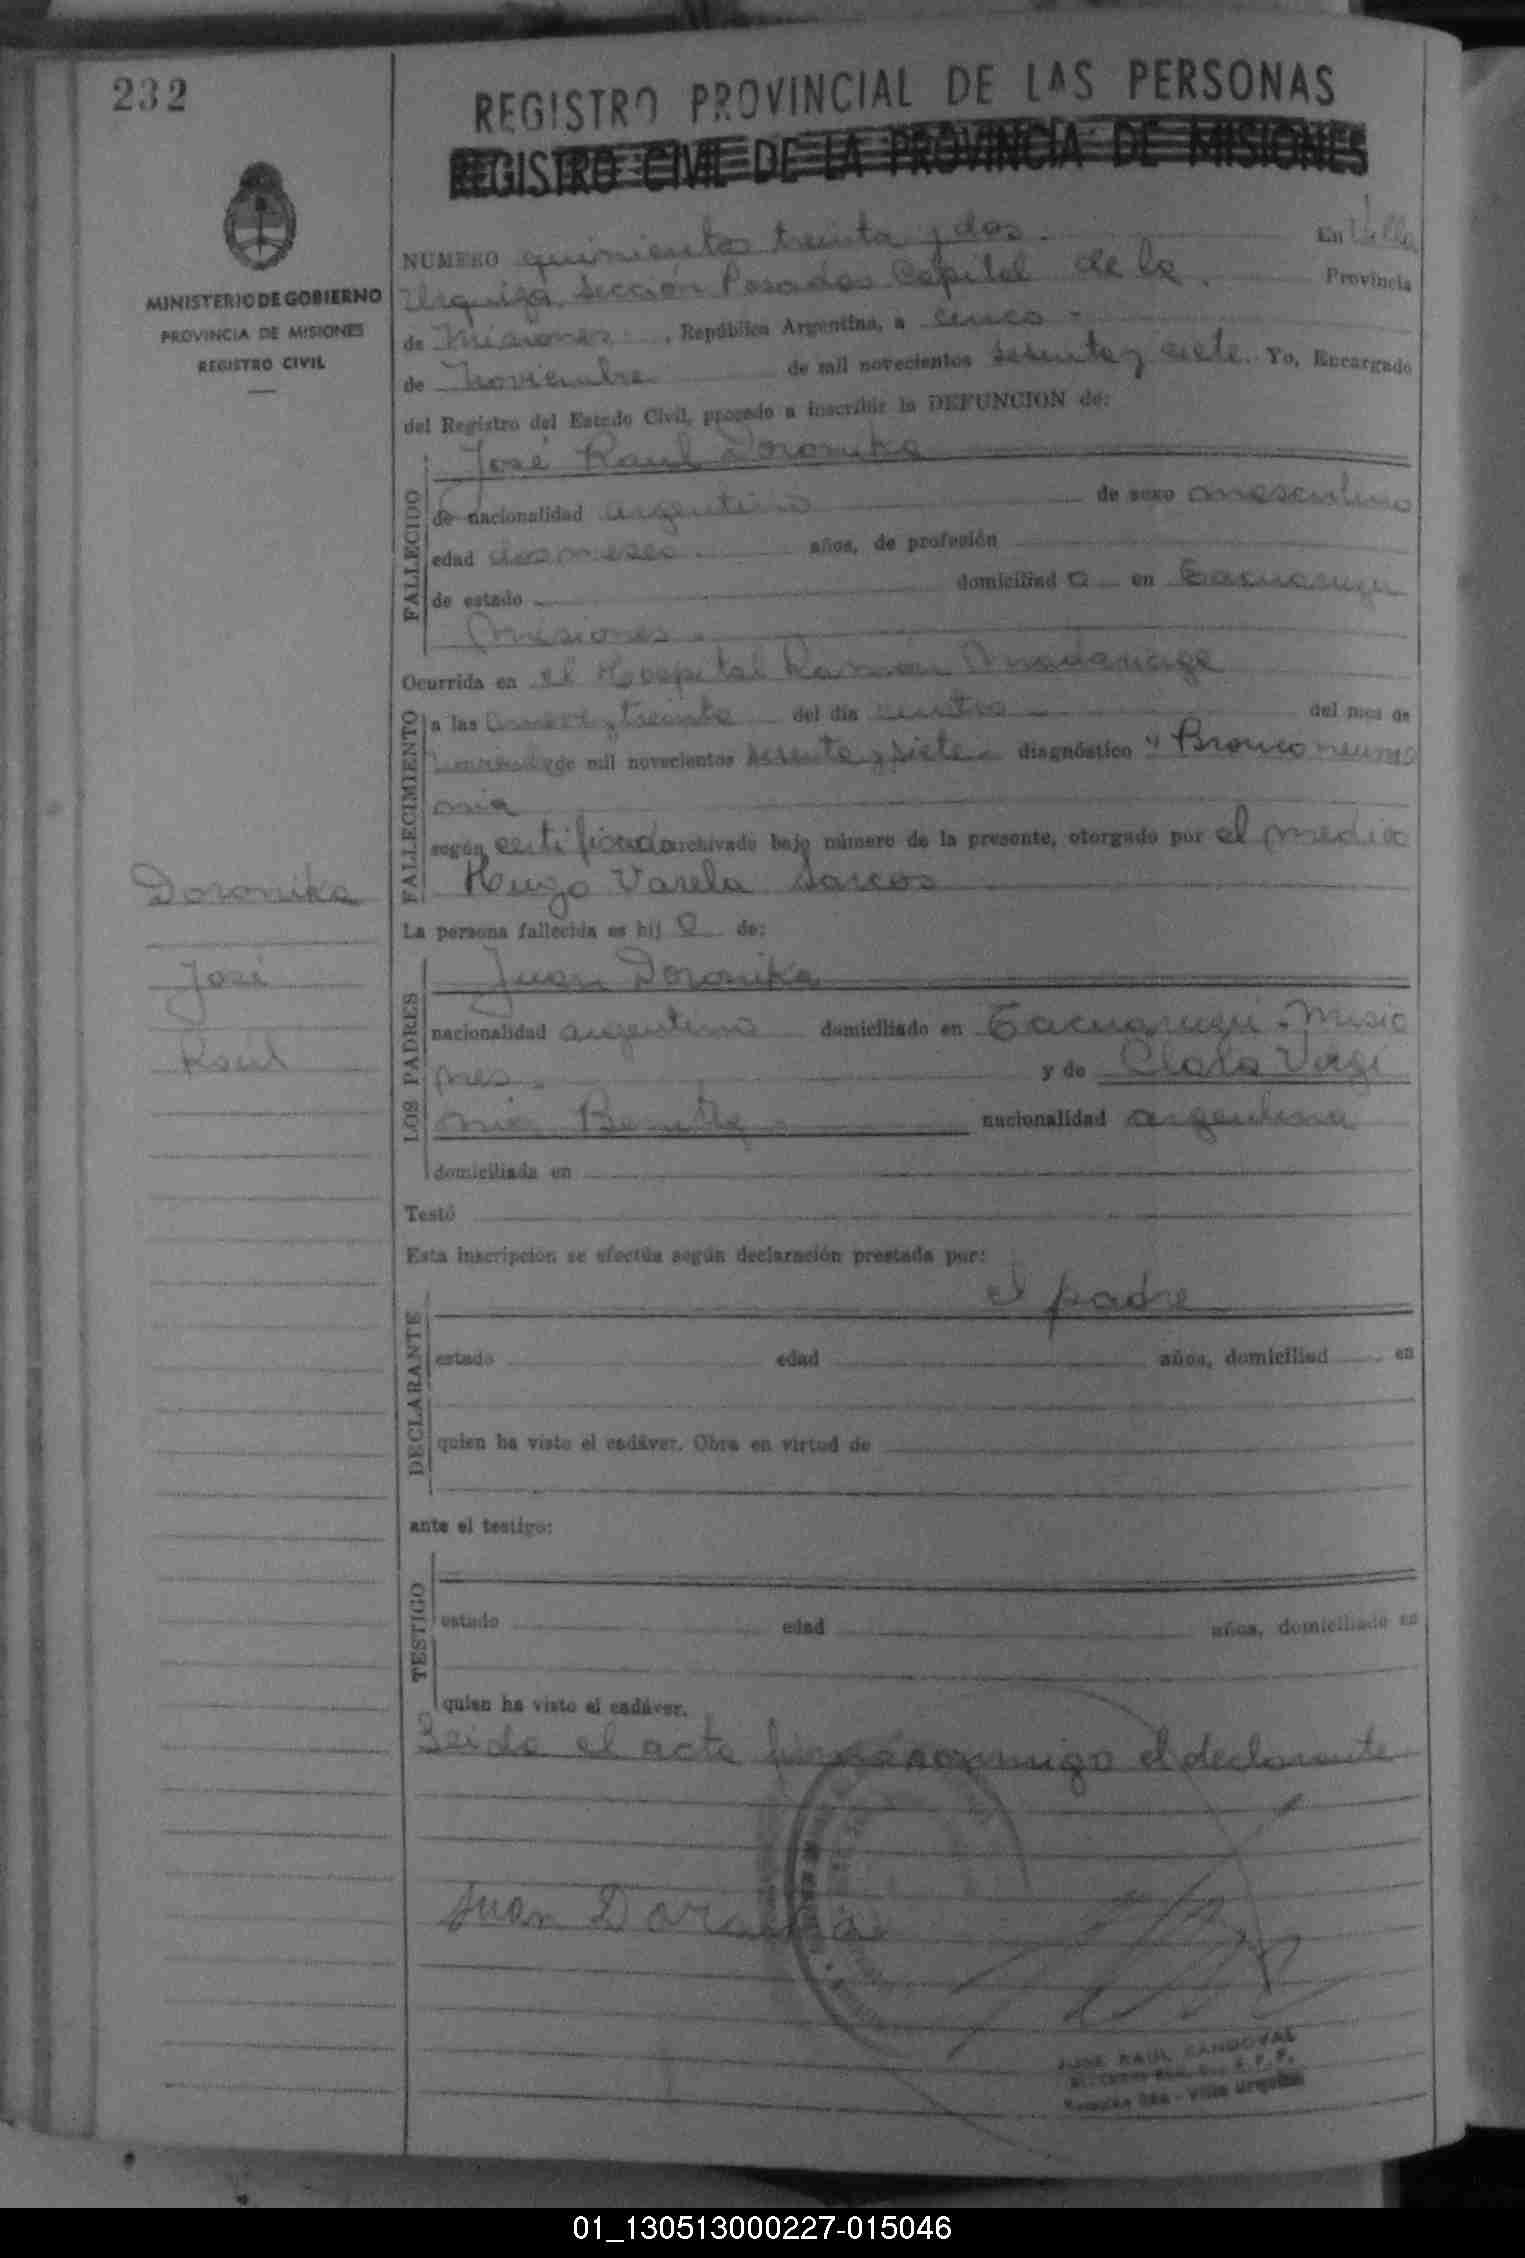 232
REGISTRO PROVINCIAL DE LAS PERSONAS
REGISTRO CIVIL DE LA PROVINCIA DE MISIONES
MINISTERIO DE GOBIERNO
PROVINCIA DE MISIONES
REGISTRO CIVIL
NUMERO quinientos treinta y dos. En Villa
Urquiza Sección Posadas Capital de la. Provincia
de Misiones, República Argentina, a cinco
de Noviembre de mil novecientos sesenta y siete. Yo, Encargado
del Registro del Estado Civil, procedo a inscribir la DEFUNCION de:
José Raul Doronika
FALLECIDO
de nacionalidad argentino de sexo masculino
edad dos meses. años, de profesión
de estado domiciliad o en Tacuaruzu
Misiones.
Ocurrida en el Hospital Ramón Madariaga
FALLECIMIENTO
a las y treinta del día cuatro del mes de
de mil novecientos sesenta y siete diagnóstico "Bronconeumo
nia
según certificado archivado bajo número de la presente, otorgado por el medico
Hugo Varela
La persona fallecida es hij o de:
Doronika
José
Raúl
Juan Doronika
LOS PADRES
nacionalidad argentino domiciliado en Tacuaruzu. Misio
nes. y de Clara Virgi
nia Benitez nacionalidad argentina
domiciliada en
Testó
Esta inscripción se efectúa según declaración prestada por:
el padre
DECLARANTE
estado edad años, domiciliad en
quien ha visto el cadáver. Obra en virtud de
ante el testigo:
TESTIGO
estado edad años, domiciliado en
quien ha visto el cadáver.
Leida el acta firma conmigo el declarante
Juan Doronika
JOSE RAUL SANDOVAL
Villa Urquiza
01_130513000227-015046